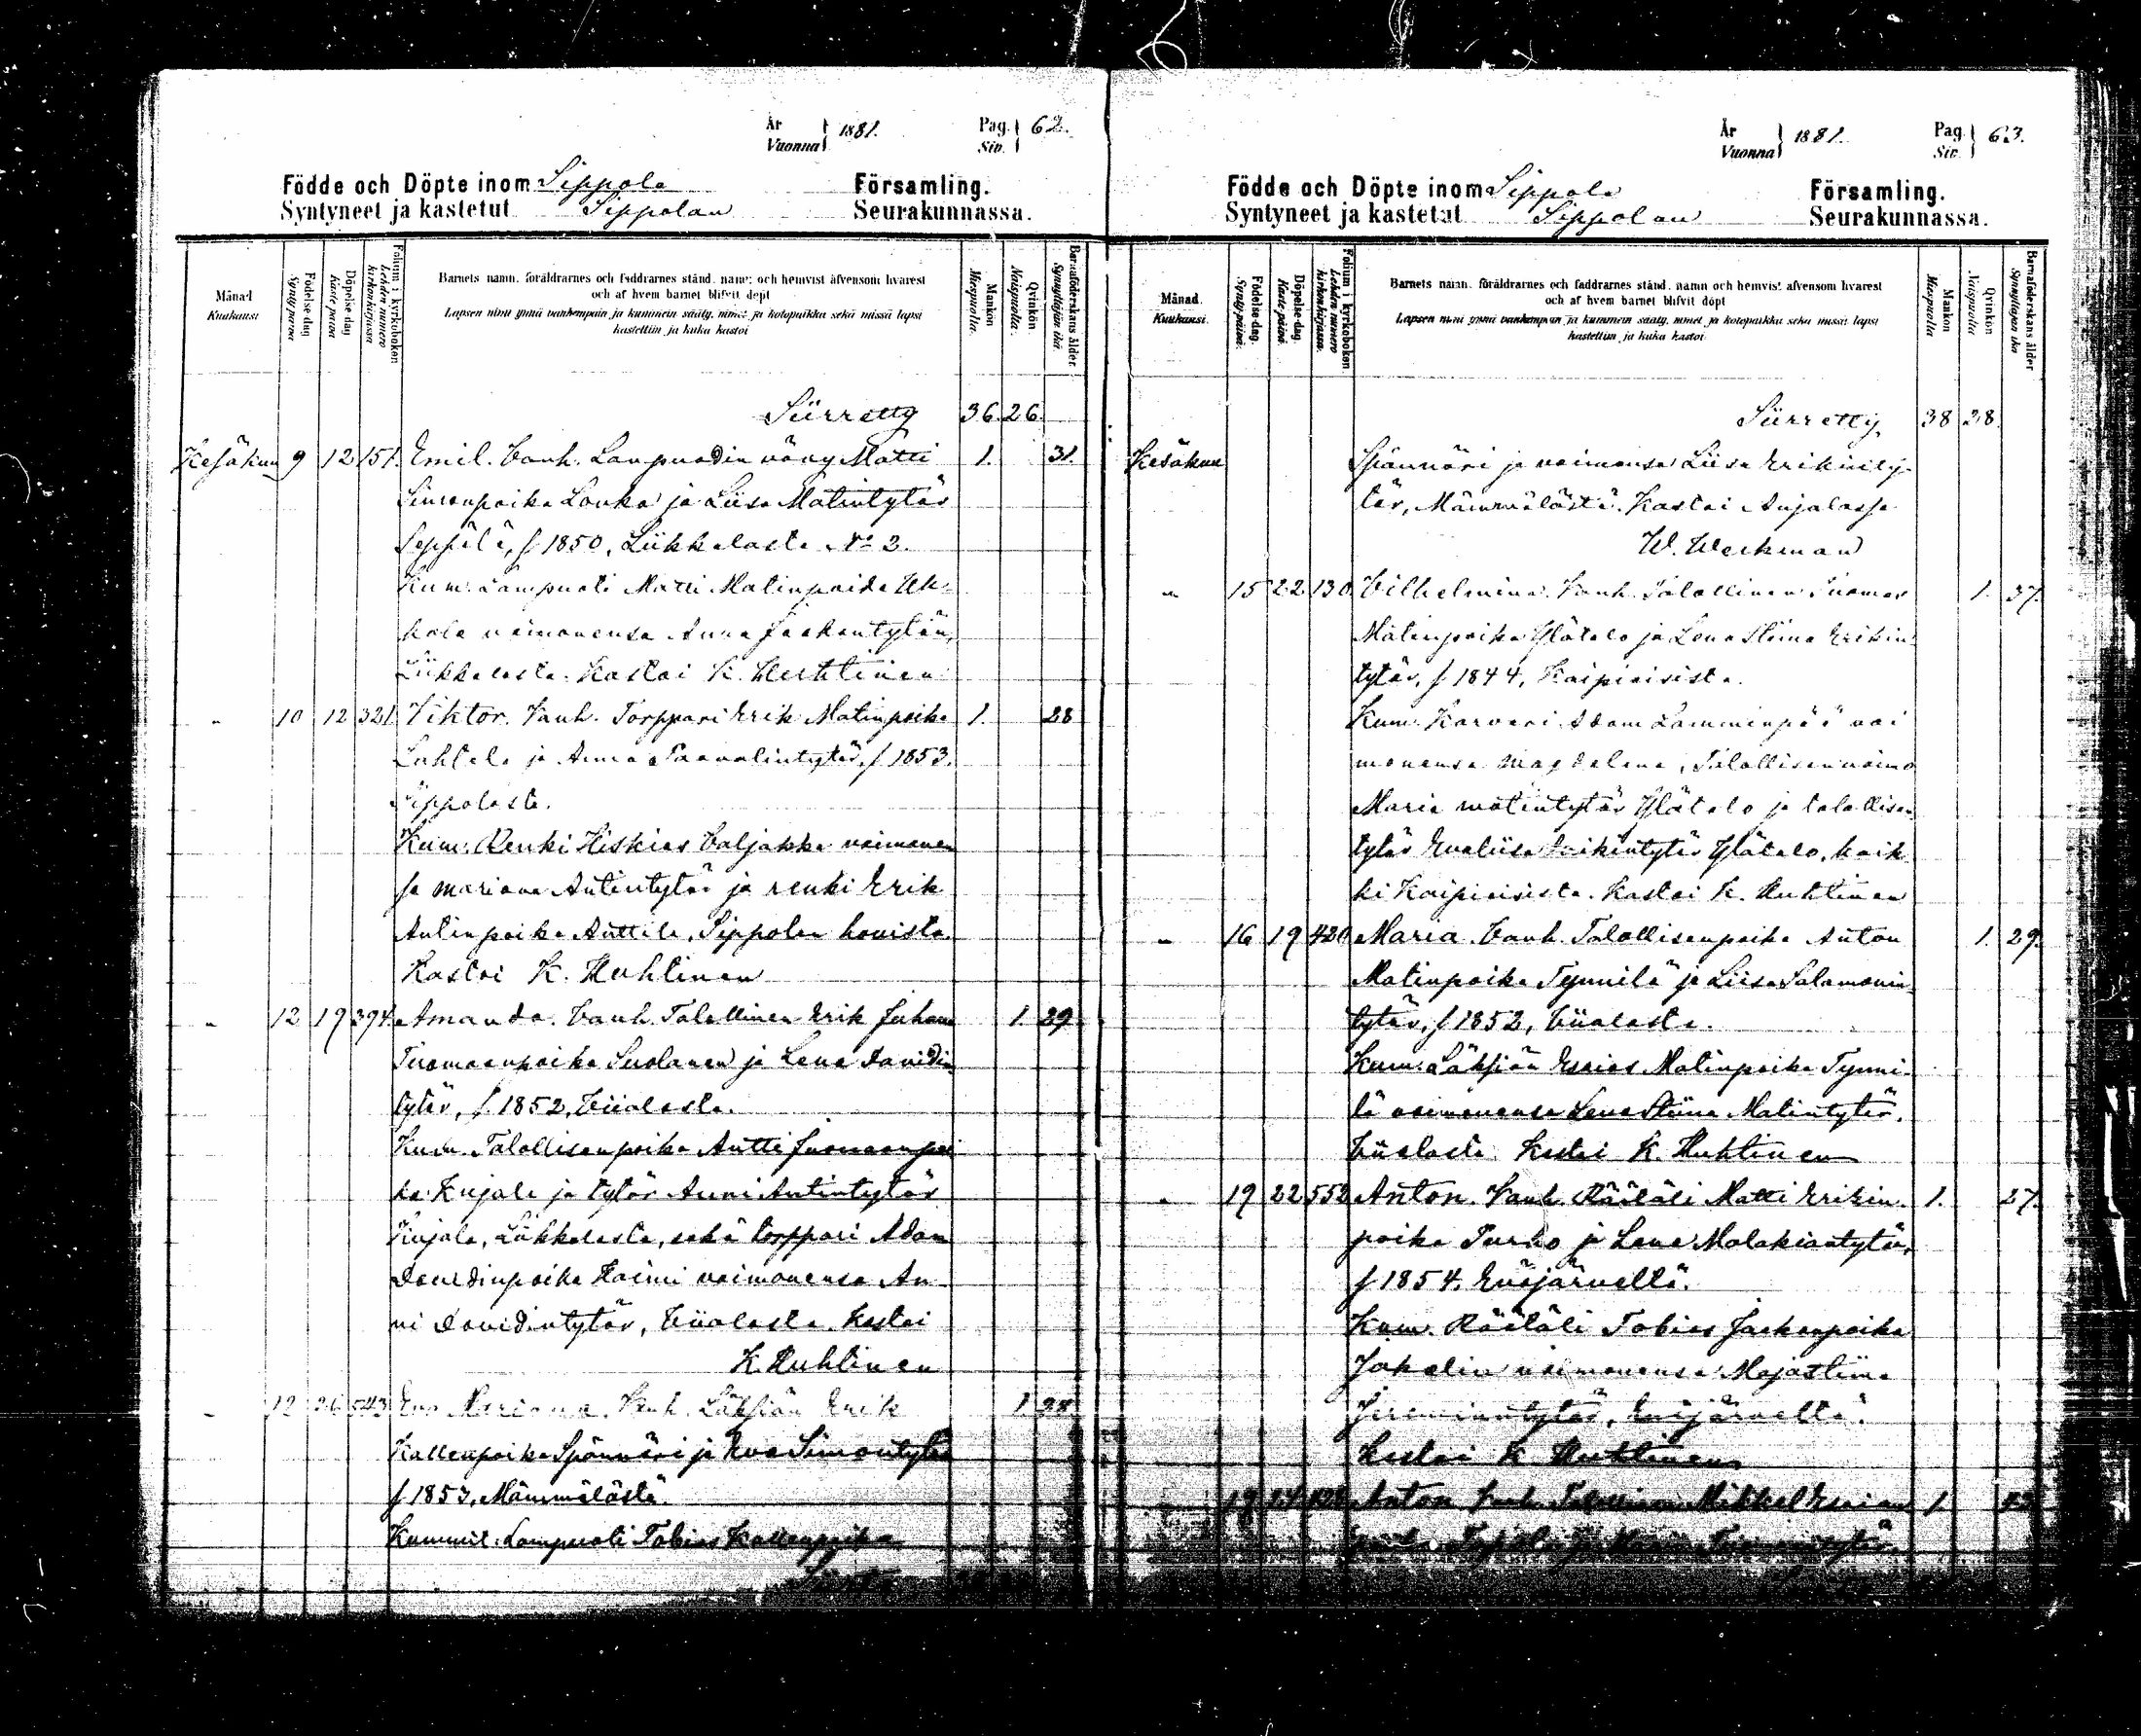 År
Vuonna } 1881. Pag. Siv. } 62.
Födde och Döpte inom Sippola Församling.
Syntyneet ja kastetut Sippolan Seurakunnassa.
Månad
Kuukausi
Födelse dag
Syntypäivä
Döpelse dag
Kastepäivä
Folium i kyrkoboken
Lehden numero kirkonkirjassa
Barnets namn, föräldrarnes och faddrarnes stånd, namn och hemvist äfvensom hvarest
och af hvem barnet blifvit döpt
Lapsen nimi ynnä vanhempain ja kummein sääty, nimet ja kotopaikka sekä missä lapsi
kastettiin ja kuka kastoi
Mankön
Miespuolia
Qvinkön
Naispuolia
Barnaföderskans ålder
Synnyttäjän ikä
Siirretty 36. 26.
Kesäkuu 9 12 151. Emil. Vanh. Lampuodin vävy Matti 1. 31.
Simonpoika Louka ja Liisa Matintytär
Seppälä, f 1850, Liikkalasta No 2.
Kum: Lampuoti Matti Matinpoika
vaimonensa Anna Jaakontytär,
Liikkalasta. Kastoi K. Huhtinen
" 10 12 321. Viktor. Vanh. Torppari Erik Matinpoika 1. 28
Lahtela ja Anna Paavalintytär, f 1853.
Sippolasta.
Kum: Renki Hiskias Valjakka vaimonen
sa Mariana Antintytär ja renki Erik
Antinpoika Anttila, Sippolan hovista.
Kastoi K. Huhtinen
" 12 19 394. Amanda. Vanh. Talollinen Erik Juhana 1. 29
Tuomaanpoika Suolanen ja Lena Davidin
tytär, f. 1852, Viialasta.
Kum. Talollisenpoika Antti Tuomaanpoi
ka Kujala ja tytär Anni Antintytär
Kujala, Liikkalasta, sekä torppari Adam
Davidinpoika Haimi vaimonensa An
ni Davidintytär, Viialasta. Kastoi
K. Huhtinen
" 12 26 543 Eva Mariana. Vanh. Läksiän Erik 1. 28
Kallenpoika Spännäri ja Eva Simontytär
f 1853, Mämmälästä.
Kummit: Lampuoti Tobias Kallenpoika
År
Vuonna } 1881. Pag. Siv. } 63.
Födde och Döpte inom Sippola Församling.
Syntyneet ja kastetut Sippolan Seurakunnassa.
Månad.
Kuukausi.
Födelse-dag.
Syntypäivä.
Döpelse-dag.
Kastepäivä.
Folium i kyrkoboken
Lehden numero kirkonkirjassa.
Barnets namn, föräldrarnes och faddrarnes stånd, namn och hemvist äfvensom hvarest
och af hvem barnet blifvit döpt
Lapsen nimi ynnä vanhempain ja kummein sääty, nimet ja kotopaikka sekä missä lapsi
kastettiin ja kuka kastoi
Mankön
Miespuolia
Qvinkön
Naispuolia
Barnaföderskans ålder
Synnyttäjän ikä
Siirretty 38 28.
Kesäkuu Spännäri ja vaimonsa Liisa Erikinty-
tär, Mämmälästä. Kastoi Anjalassa
W. Weckman
" 15 22 130. Vilhelmina. Vanh. Talollinen Tuomas 1. 37.
Matinpoika Ylätalo ja Lena Stiina Erikin
tytär, f 1844, Kaipiaisista.
Kum. Karvari Adam Lamminpää vai
monensa Magdalena, Talollisen vaimo
Maria Matintytär Ylätalo ja talollisen
tytär Evaliisa Erikintytär Ylätalo, kaik
ki Kaipiaisista. Kastoi K. Huhtinen
" 16 19 420 Maria. Vanh. Talollisenpoika Anton 1. 29.
Matinpoika Tynnilä ja Liisa Salamonin
tytär, f 1852, Viialasta.
Kum: Läksiän Esaias Matinpoika Tynni-
lä vaimonensa Lena Stiina Matintytär.
Viialasta. Kastoi K. Huhtinen
" 19 22 552 Anton. Vanh. Räätäli Matti Erikin 1. 27.
poika Turko ja Lena Malakiantytär,
f 1854, Enäjärveltä.
Kum. Räätäli Tobias Jaakonpoika
vaimonensa Majastiina
Enäjärveltä.
Kastoi K. Huhtinen
19 24 Anton Vanh. Talollinen Mikkel Esaian 1.